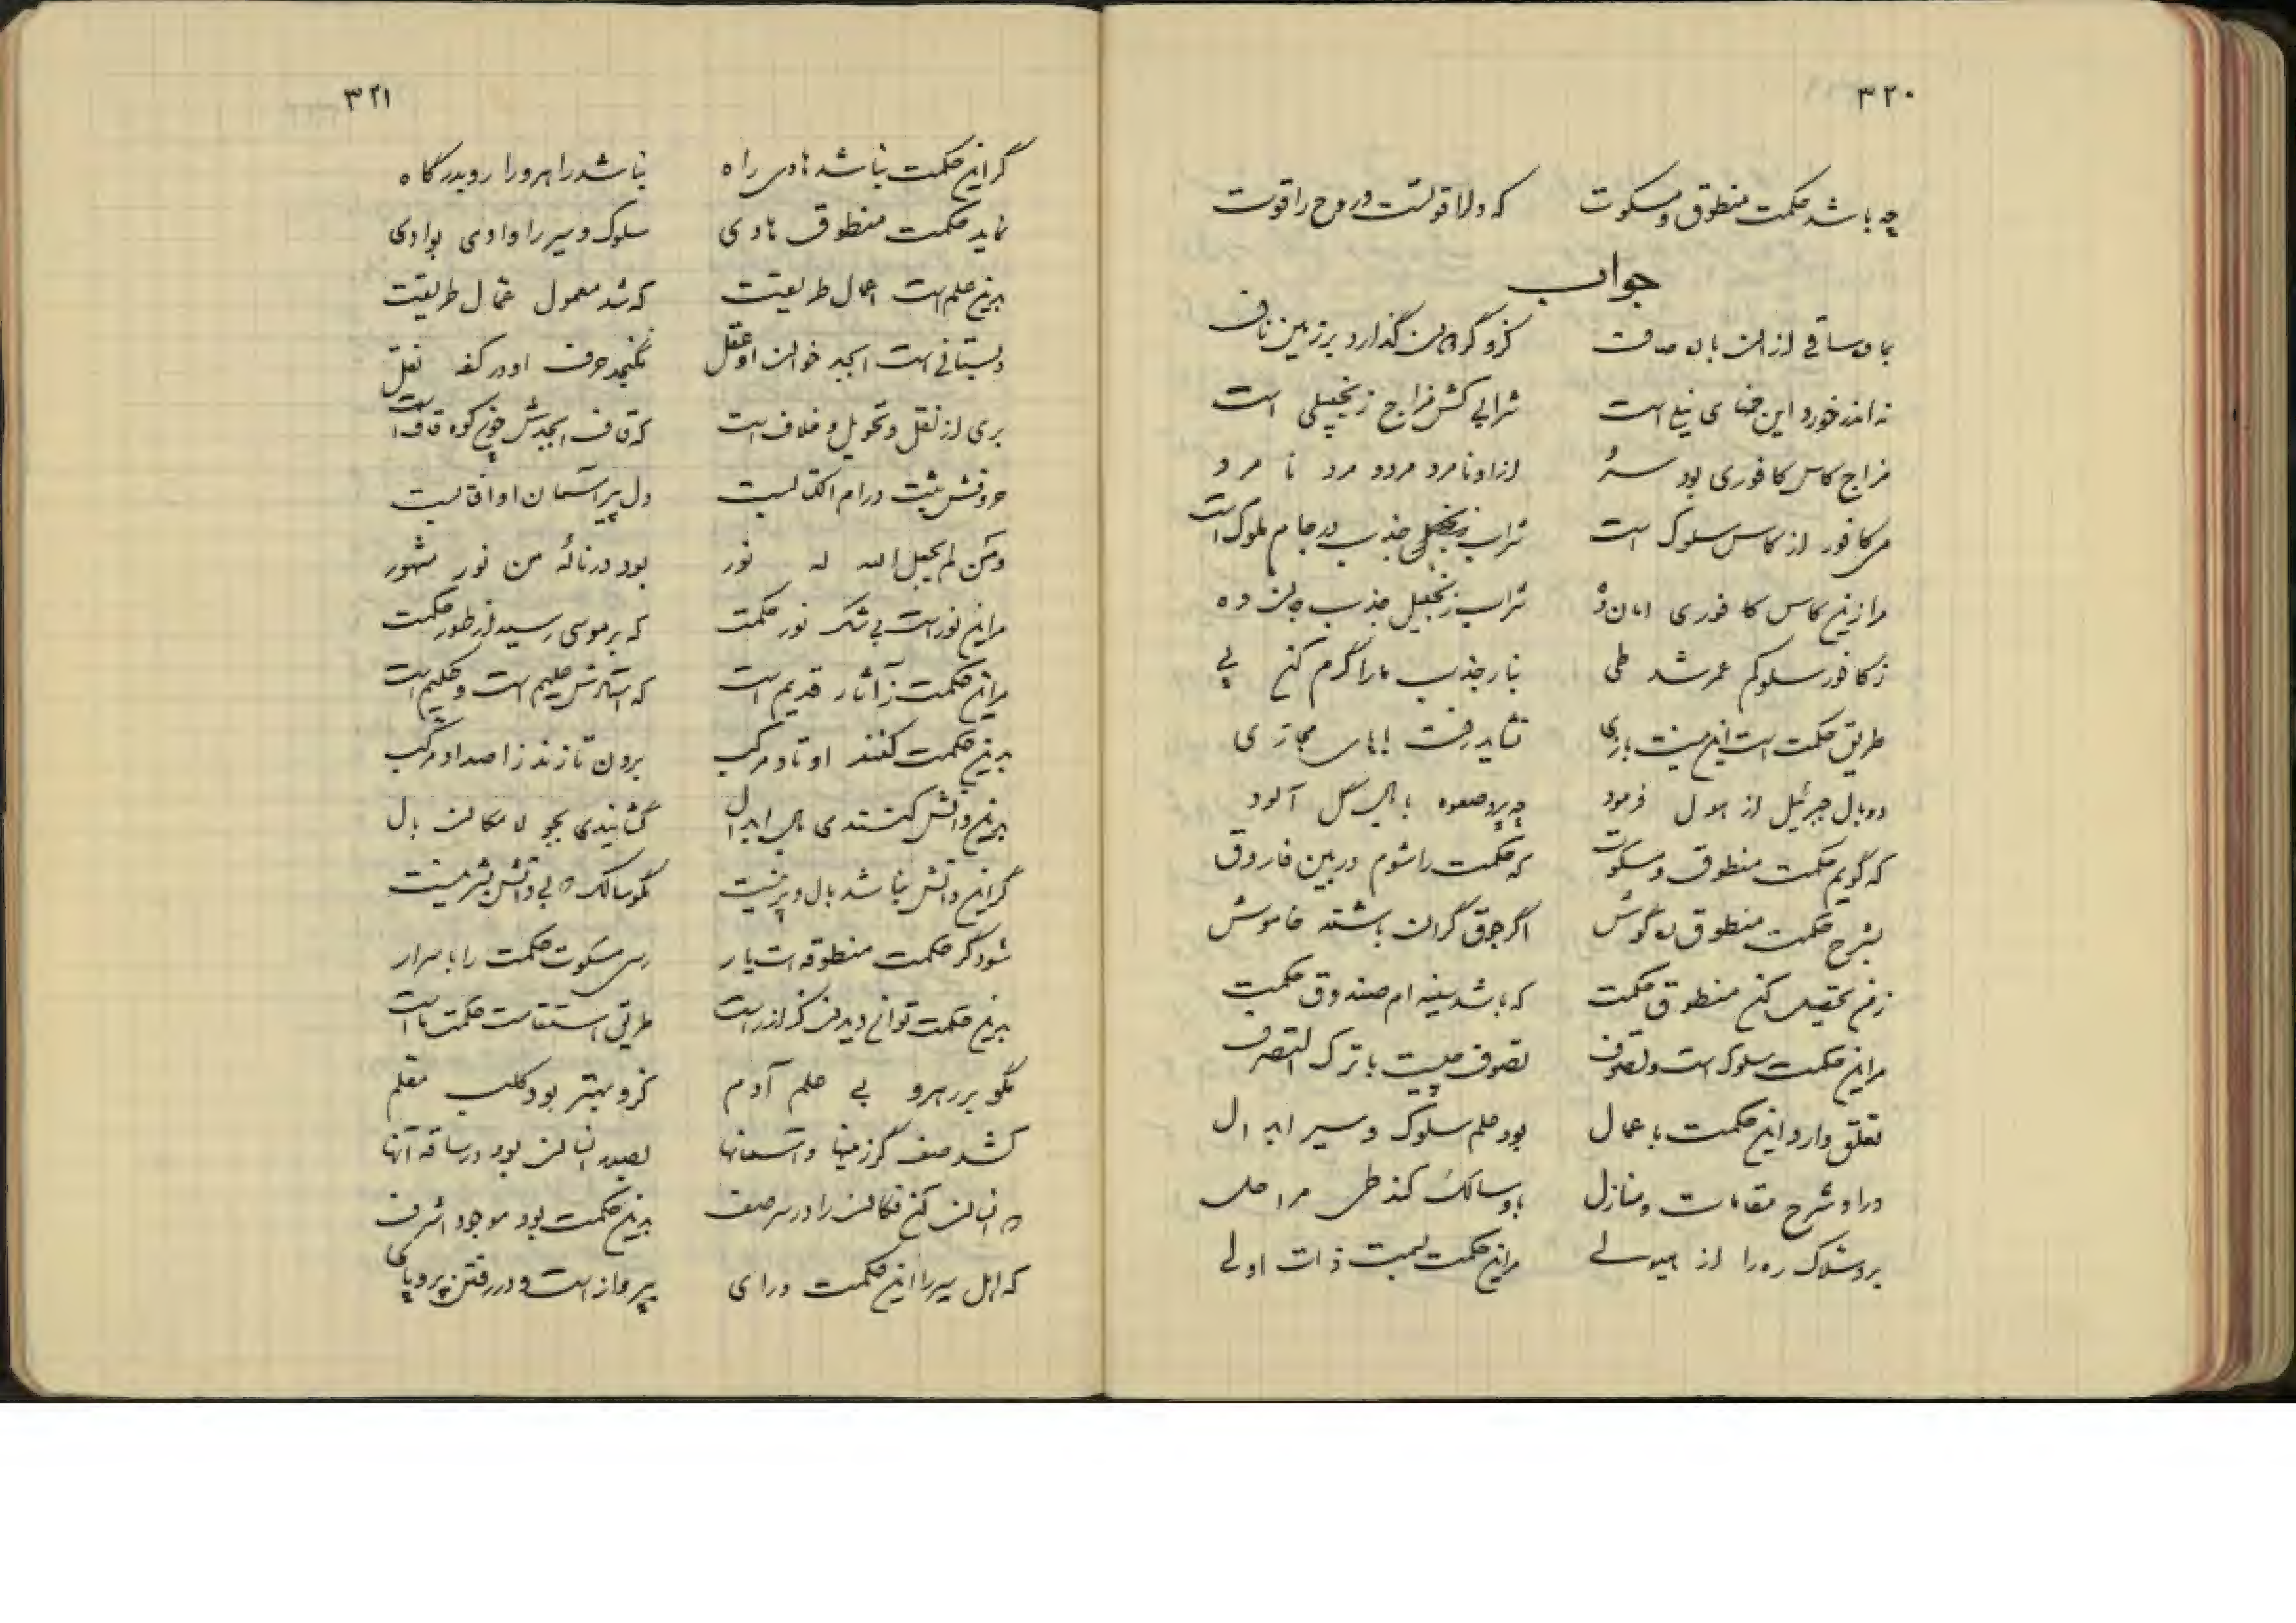 ٣٢٠
چه باشد حکمت منطوق و مسکوت که دل را قوتست و روح را قوت
جواب
بجان ساقی از آن باده صاف کزو گردون گذارد بر زمین ناف
نه اندر خورد این خنای نیلی است شرابی کش مزاج زنجبیلی است
مزاج کاس کافوری بود سرد از او نامرد مردو مرد نا مرد
مر کافور از کاس سلوک است شراب زنجبیلی جذب در جام ملوک است
مرا زین کاس کافوری امان ده شراب زنجبیل جذب جان ده
ز کافور سلوکم عمر شد طی بنار جذب ما را گرم کن پی
طریق حکمت است این نیست بازی نشاید رفت با پای مجازی
دو بال جبرئیل از هول فرسود چه پرد صعوه با بال گل آلود
که گویم حکمت منطوق و مسکوت که حکمت را شوم در بین فاروق
بشرح حکمت منطوق ده گوش اگر جوق گران باشند خاموش
ز من تحصیل کن منطوق حکمت که باشد سینه ام صندوق حکمت
مر این حکمت سلوک است و تصوف تصوف چیست با ترک التصرف
تعلق دارد این حکمت باعمال بود علم سلوک و سیر ابدال
در او شرح مقامات و منازل باو سالک کند طی مراحل
برد سلاک ره را از هیولی مر این حکمت بسمت ذات اولی
٣٢١
گر این حکمت نباشد هادی راه نباشد راهرو را رو بدرگاه
نماید حکمت منطوق هادی سلوک و سیر را وادی بوادی
بدین علم است اعمال طریقت که شد معمول عمال طریقت
دبستانی است ابجد خوان او عقل نگنجد حرف او در کفه نقل
بری از نقل و تحویل و خلاف است که قاف ابجدش چون کوه قاف است
حروفش ثبت در ام الکتابست دل پیر آسمان او آفتابست
و من لم یجعل الله له نور بود در نائه من نور مشهور
مر این نور است بی شک نور حکمت که بر موسی رسید از طور حکمت
مر این حکمت ز آثار قدیم است که استادش علیم است و حکیم است
بدین حکمت کنند اوتاد مرکب برون تازند ز اضداد مرکب
بدین دانش کشندی بال ابدال گشایندی بجو لامکان بال
گر این دانش نباشد بال و پر نیست مگو سالک که بی دانش بشر نیست
شود گر حکمت منطوقه ات یار رسی مسکوت حکمت را باسرار
بدین حکمت توانی دید کز راست طریق استقامت حکمت ماست
مگو بر رهرو بی علم آدم کزو بهتر بود کلب معلم
کشد صف گر زمینها و آسمانها بصید انسان بود در ساقه آنها
که انسان کنج فکان را در سر صف بدین حکمت بود موجود اشرف
که اهل سیر را این حکمت و رای پر پرواز است و در رفتن پر و پای